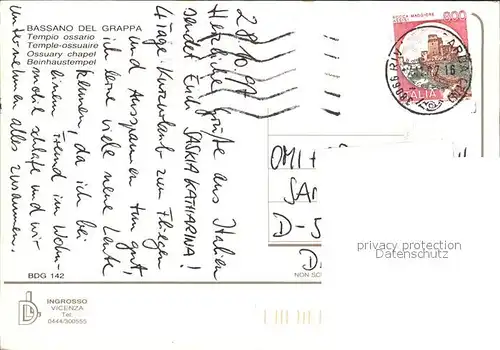 BASSANO DEL GRAPPA
Tempio ossario
Temple-ossuaire
Ossuary chapel
Beinhaustempel
28.10.97
Herzliche Grüße aus Italien
sendet Euch SASKIA KATHARINA!
4 Tage Kurzurlaub zum Fliegen
und Ausspannen tun gut,
ich lerne viele neue Leute
kennen, da ich bei
einem Freund im Wohn-
mobil schlafe und wir
unternehmen alles zusammen.
BDG 142
INGROSSO
VICENZA
Tel.
0444/300555
MAGGIORE
800
ITALIA
OMI +
D-5
privacy protection
Datenschutz
NON SC